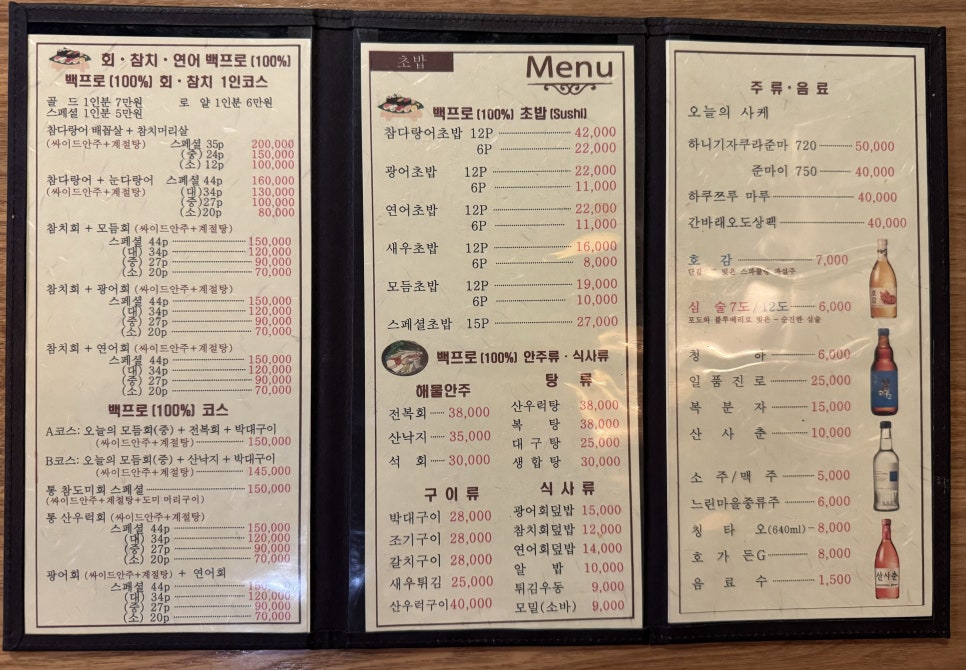 회 · 참치 · 연어 백프로 (100%)
백프로 (100%) 회 · 참치 1인코스
골 드 1인분 7만원 로 얄 1인분 6만원
스페셜 1인분 5만원
참다랑어 배꼽살 + 참치머리살
(싸이드안주+계절탕) 스페셜 35p 200,000
(중) 24p 150,000
(소) 12p 100,000
참다랑어 + 눈다랑어 스페셜 44p 160,000
(싸이드안주+계절탕) (대)34p 130,000
(중)27p 100,000
(소)20p 80,000
참치회 + 모듬회 (싸이드안주+계절탕)
스페셜 44p 150,000
(대) 34p 120,000
(중) 27p 90,000
(소) 20p 70,000
참치회 + 광어회 (싸이드안주+계절탕)
스페셜 44p 150,000
(대) 34p 120,000
(중) 27p 90,000
(소) 20p 70,000
참치회 + 연어회 (싸이드안주+계절탕)
스페셜 44p 150,000
(대) 34p 120,000
(중) 27p 90,000
(소) 20p 70,000
백프로 (100%) 코스
A코스: 오늘의 모듬회(중) + 전복회 + 박대구이
(싸이드안주+계절탕) 150,000
B코스: 오늘의 모듬회(중) + 산낙지 + 박대구이
(싸이드안주+계절탕) 145,000
통 참도미회 스페셜 150,000
(싸이드안주+계절탕+도미 머리구이)
통 산우럭회 (싸이드안주+계절탕)
스페셜 44p 150,000
(대) 34p 120,000
(중) 27p 90,000
(소) 20p 70,000
광어회 (싸이드안주+계절탕) + 연어회
스페셜 44p 150,000
(대) 34p 120,000
(중) 27p 90,000
(소) 20p 70,000
초밥
Menu
백프로 (100%) 초밥 (Sushi)
참다랑어초밥 12P 42,000
6P 22,000
광어초밥 12P 22,000
6P 11,000
연어초밥 12P 22,000
6P 11,000
새우초밥 12P 16,000
6P 8,000
모듬초밥 12P 19,000
6P 10,000
스페셜초밥 15P 27,000
백프로 (100%) 안주류 · 식사류
해물안주
전복회 38,000
산낙지 35,000
석 회 30,000
탕 류
산우럭탕 38,000
복 탕 38,000
대 구 탕 25,000
생 합 탕 30,000
구 이 류
박대구이 28,000
조기구이 28,000
갈치구이 28,000
새우튀김 25,000
산우럭구이 40,000
식 사 류
광어회덮밥 15,000
참치회덮밥 12,000
연어회덮밥 14,000
알 밥 10,000
튀김우동 9,000
모밀(소바) 9,000
주 류 · 음 료
오늘의 사케
하니기자쿠라준마 720 50,000
준마이 750 40,000
하쿠쯔루 마루 40,000
간바래오도상팩 40,000
호 감 7,000
빚은 스파클링
심 술 7도/12도 6,000
포도와 블루베리로 빚은 - 순진한 심술
청 하 6,000
일 품 진 로 25,000
복 분 자 15,000
산 사 춘 10,000
소 주 / 맥 주 5,000
느린마을증류주 6,000
칭 타 오(640ml) 8,000
호 가 든G 8,000
음 료 수 1,500
산사춘